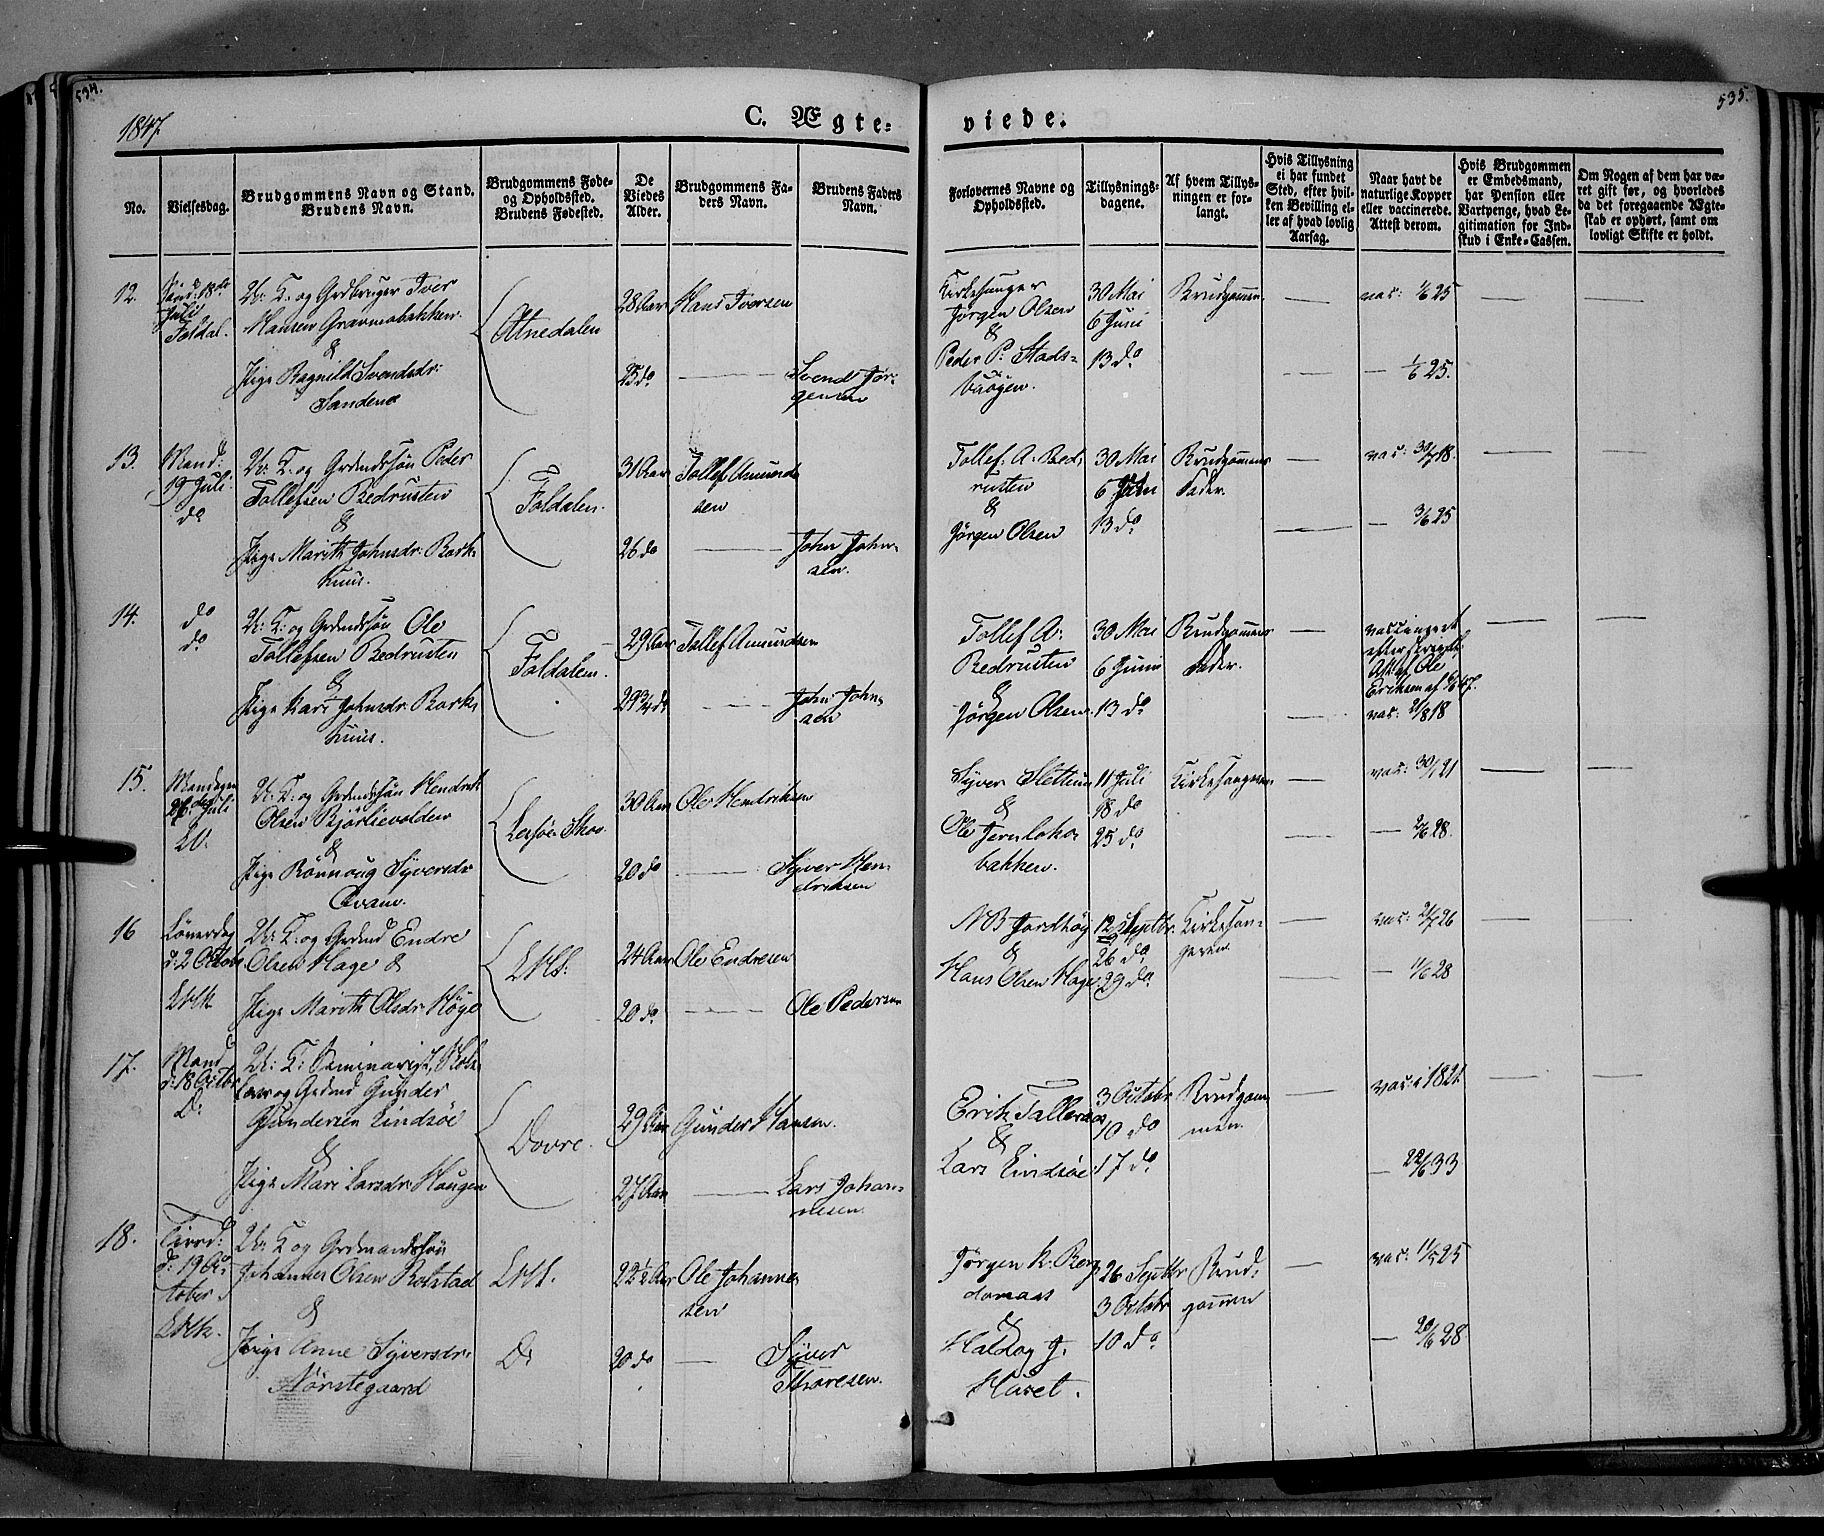 534.
535.
1847.
C. Ægte=
viede.
No.
Vielsesdag.
Brudgommens Navn og Stand.
Brudens Navn.
Brudgommens Føde-
og Opholdssted.
Brudens Fødested.
De
Viedes
Alder.
Brudgommens Fa-
ders Navn.
Brudens Faders
Navn.
Forlovernes Navne og
Opholdssted.
Tillysnings-
dagene.
Af hvem Tillys-
ningen er for-
langt.
Hvis Tillysning
ei har fundet
Sted, efter hvil-
ken Bevilling el-
ler af hvad lovlig
Aarsag.
Naar havt de
naturlige Kopper
eller vaccinerede.
Attest derom.
Hvis Brudgommen
er Embedsmand,
har Pension eller
Vartpenge, hvad Le-
gitimation for Ind-
skud i Enke-Cassen.
Om Nogen af dem har væ-
ret gift før, og hvorledes
da det foregaaende Ægte-
skab er ophørt, samt om
lovligt Skifte er holdt.
12.
Sønd: 18de
Juli
Foldal.
U: K: og Grdbruger Iver
Hansen Gravmobakken
&
Pige Ragnild Svendsdr:
Sandene
Atnedalen
28 Aar
25 do
Hans Iversen
Svend Jør-
gensen
Kirkesanger
Jørgen Olsen
&
Peder P: Stads-
buøyen.
30 Mai
6 Juni
13 do
Brudgommen
vac: 1/6 25
— 1/6 25.
13.
Mand:
19 Juli
do
U: K: og Grdmdssøn Peder
Tollefsen Brdrusten
&
Pige Marith Johnsdr: Bork-
huus.
Foldalen.
31 Aar
26 do
Tollef Amund
sen
John John-
sen.
Tollef. A. Bed,
rusten
&
Jørgen Olsen
30 Mai
6 Juni
13 do
Brudgommens
Fader.
vac: 30/7 18.
— 3/6 25
14.
do
do
U: K: og Grdmdssøn Ole
Tollefsen Bedrusten
&
Pige Kari Johnsdr: Bork-
huus.
Foldalen.
29 Aar
29 3/4 do
Tollef Amundsen
John John-
sen
Tollef A:
Bedrusten
&
Jørgen Olsen
30 Mai
6 Juni
13 do
Brudgommens
Fader.
vaccineret
efter
Att: af Ole
Eriksen af 47.
vac: 21/8 18
15.
Mandagen
26de Juli
U: K: og Grdmdssøn Hendrik
Olsen Bjørlievolden
&
Pige Rønnoug Syversdr:
Qvam.
Lesje Skov
30 Aar
20 do
Ole Hendriksen
Syver Hen-
driksen
Syver Slettum
&
Ole Jernloho-
bakken.
11 Juli
18 do
25 do
Kirkesangeren
vac: 30/7 21
— 2/6 28.
16
Løverdag
d: 2 October
U: K: og Grdmd Endre
Olsen Hage &
Pige Marith Olsdr: Høye
24 Aar
20 do
Ole Endresen
Ole Pedersen
NB Jordhøy
&
Hans Olsen Hage
12 Septbr.
26 do
29 do.
Kirkesan-
geren
vac: 21/7 26
— 11/6 28
17.
Mand
d: 18 Octbr
D:
U: K: Seminarist, Skole-
lærer og Grdmd Gunder
Gundersen Lindsøe
&
Pige Mari Larsdr: Haugen
Dovre.
29 Aar
27 Aar
Gunder Hansen.
Lars Johan-
nesen.
Erik Tallerås
&
Lars Lindsøe
3 Octobr
10 do
17 do
Brudgom
men.
vac: i 1821.
— 22/6 33
18.
Tirsd:
d: 19 Oc-
tober
U: K og Grdmandssøn
Johannes Olsen Bolstad
&
Pige Anne Syversdr:
Nørstegaard
D:
22 1/2 Aar
20 do
Ole Johanne-
sen
Syver
Thoresen.
Jørgen K. Berg
domaas
&
Haldog J.
Huset.
26 Septbr
3 Octobr
10 do
Brud-
gommen
vac: 11/7 25
— 20/6 28